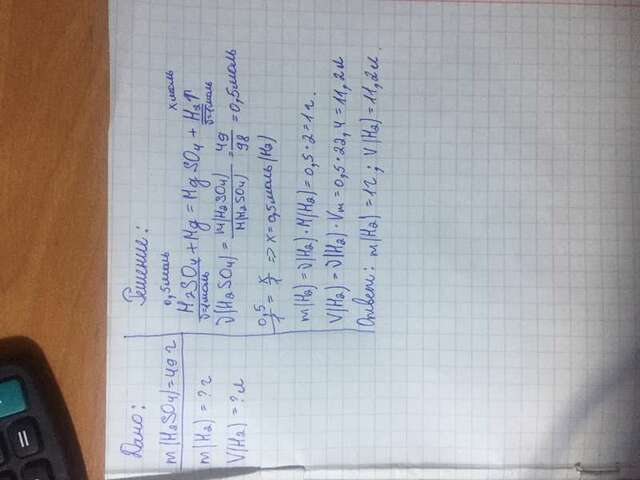 =
Дано:
m(H2SO4)=49 г
m(H2) = ? г
V(H2) = ? л
Решение:
0,5 моль x моль
H2SO4 + Mg = MgSO4 + H2↑
ν=1моль ν=1моль
ν(H2SO4) = m(H2SO4)/M(H2SO4) = 49/98 = 0,5 моль
0,5/1 = x/1 => x = 0,5 моль (H2)
m(H2) = ν(H2) · M(H2) = 0,5 · 2 = 1 г.
V(H2) = ν(H2) · Vm = 0,5 · 22,4 = 11,2 л
Ответ: m(H2) = 1 г ; V(H2) = 11,2 л.